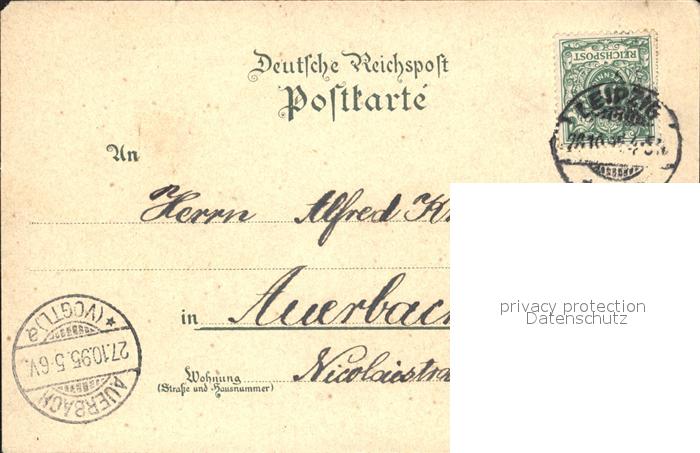 Deutsche Reichspost
Postkarte
REICHSPOST
LEIPZIG
An
Herrn Alfred
privacy protection
Datenschutz
in Auerbach
Wohnung
(Straße und Hausnummer)
AUERBACH
27.10.95.5-6V.
* (VOGTL)a